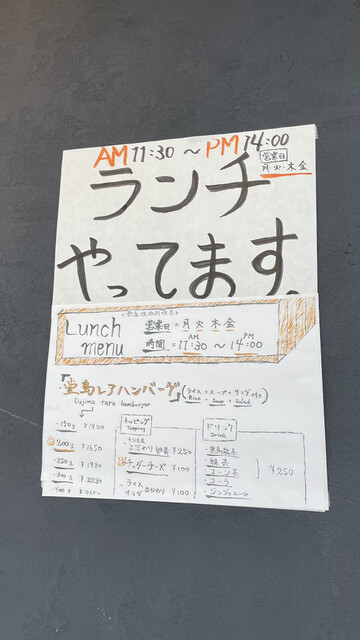 AM 11:30 ~ PM 14:00
営業日
月・火・木・金
ランチ
やってます。
Lunch menu
営業日=月 火 木 金
時間=AM 11:30 ~ PM 14:00
「堂島レアハンバーグ」
(ライス+スープ+サラダ付き)
Rice + Soup + Salad
Dojima rara hamburger
・150g ¥1420
・200g ¥1650
・250g ¥1920
・300g ¥2230
トッピング
Topping
・こだわり卵黄 ¥250
・チェダーチーズ ¥100
・ライス
サラダ おかわり ¥100
ドリンク
Drink
・黒烏龍茶
・緑茶
・コーン茶
・コーラ
・ジンジャエール
¥250